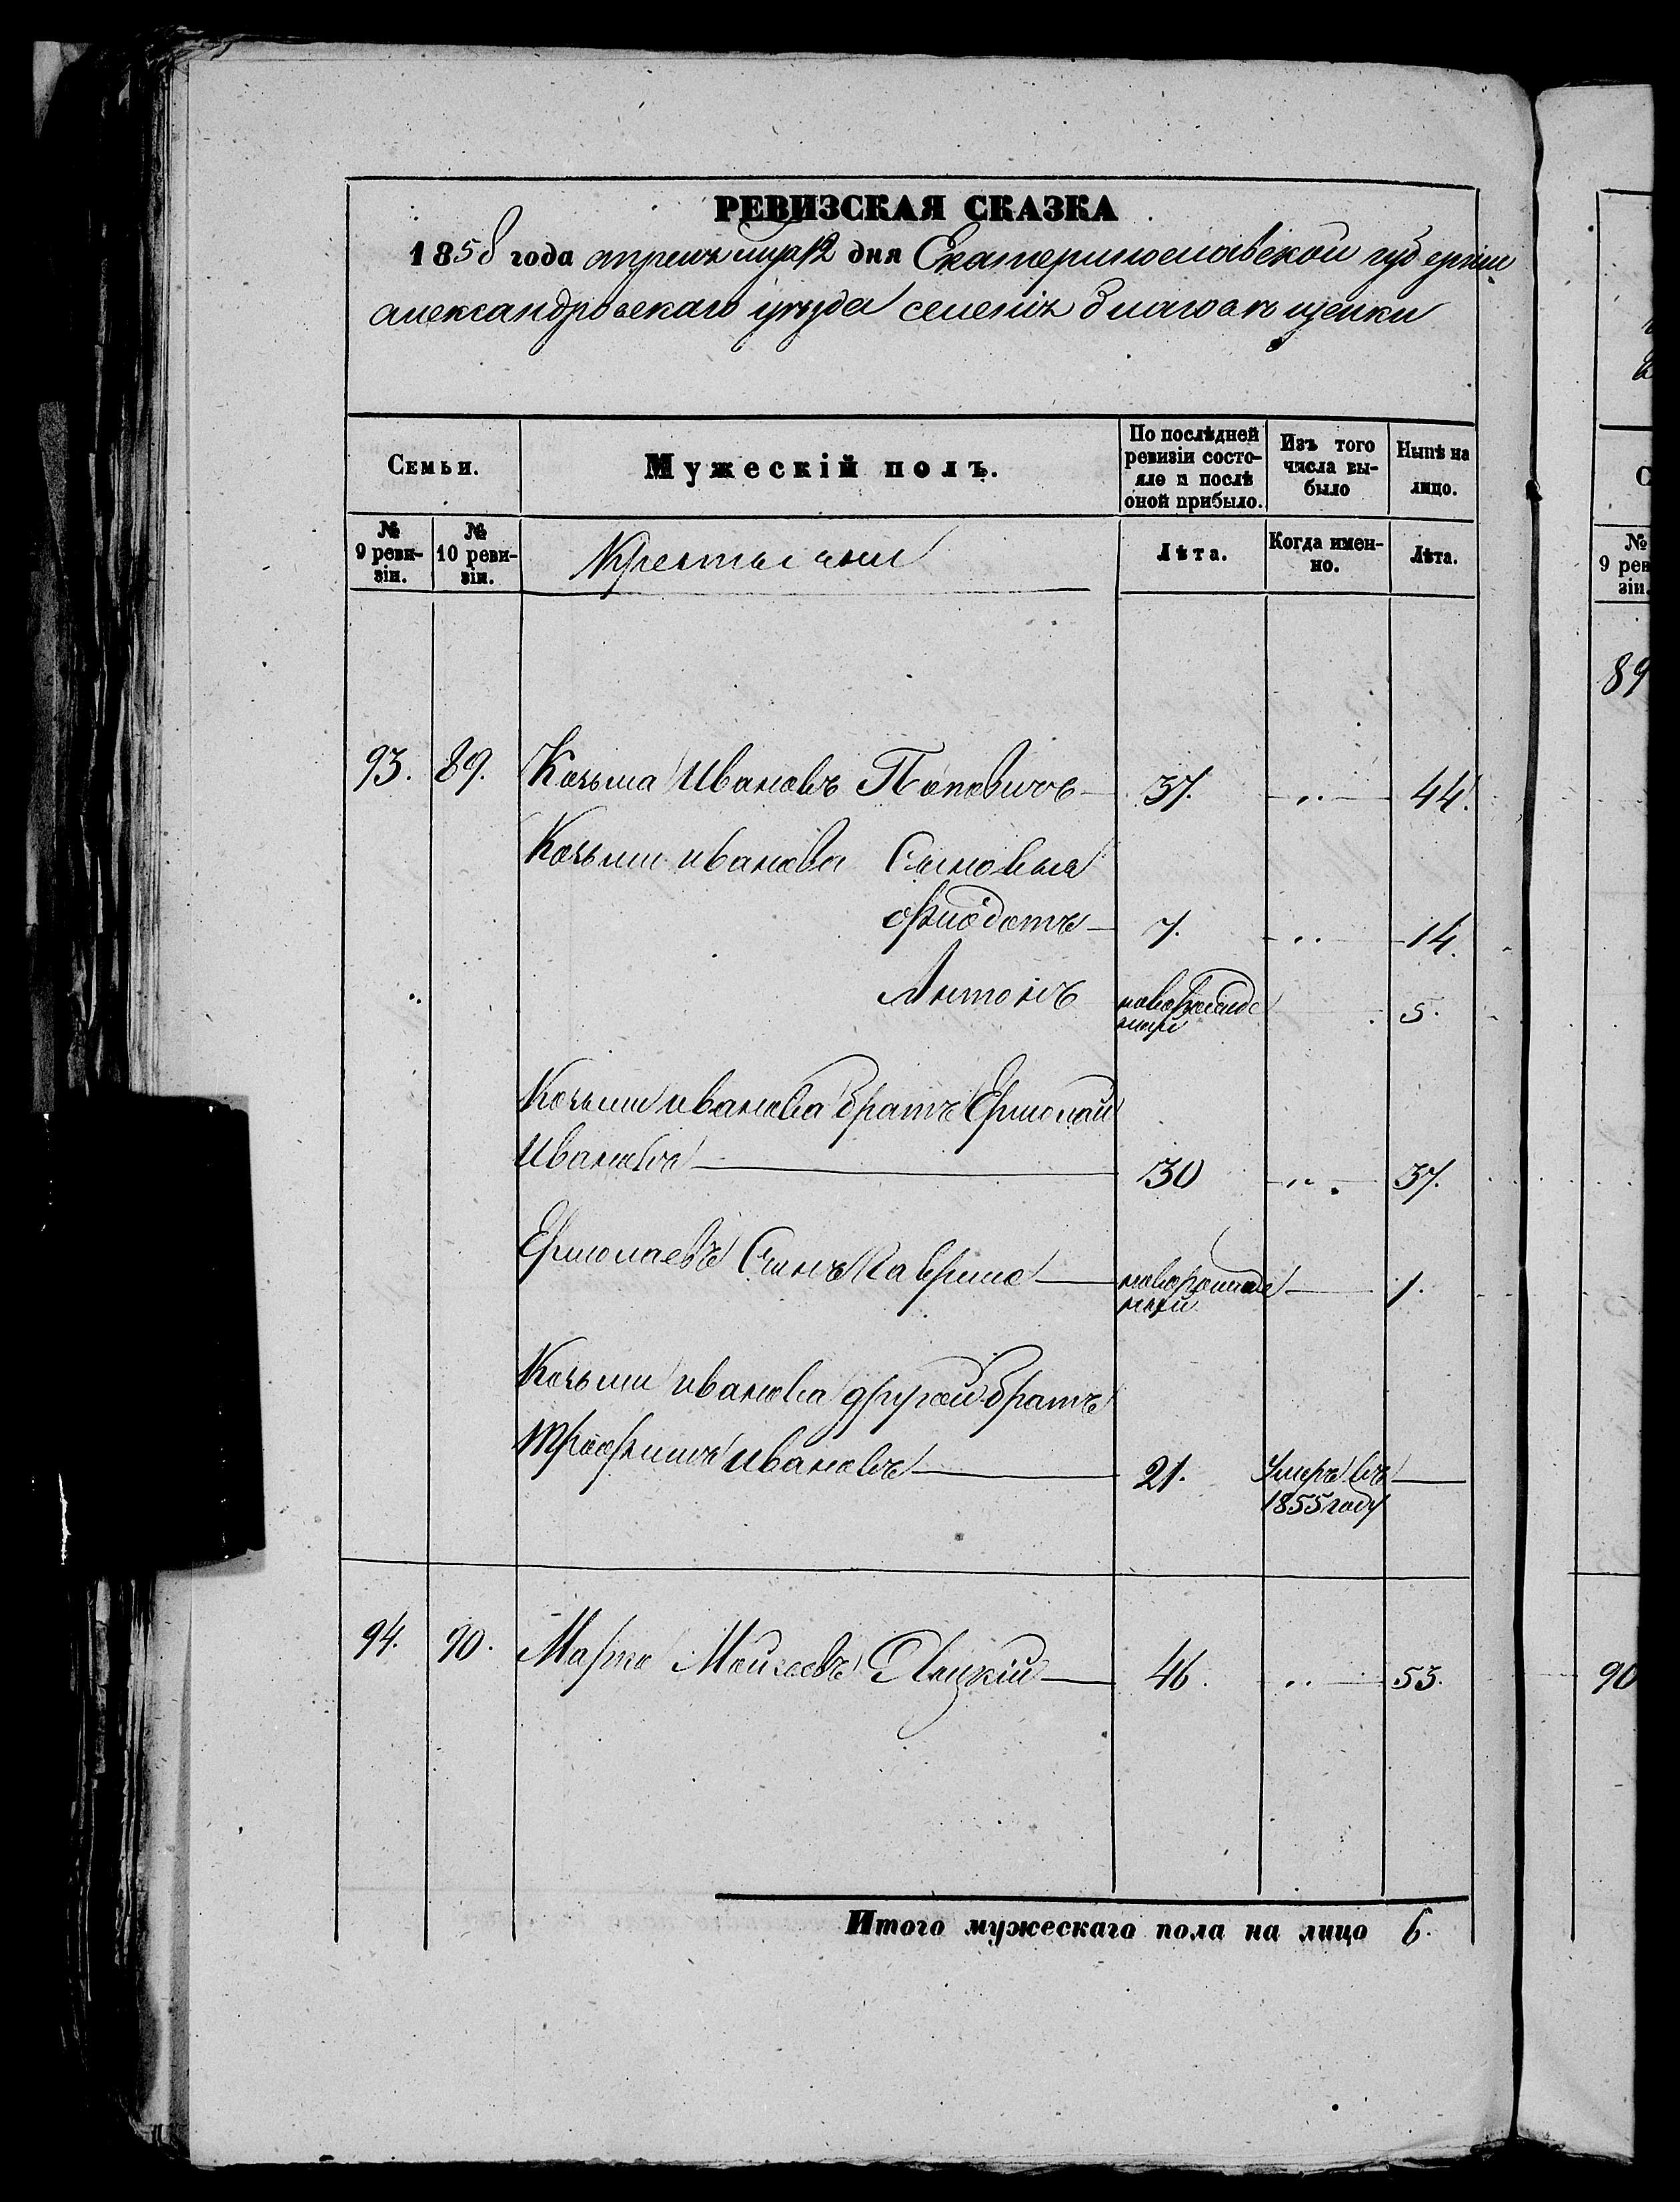 РЕВИЗСКАЯ СКАЗКА
1858 года апреля мца 12 дня Екатеринославской губернии
александровскаго уезда селения благовещенки
Семьи.
Мужескій полъ.
По послѣдней ревизіи состояло и послѣ оной прибыло.
Изъ того числа выбыло
Нынѣ на лицо.
№ 9 ревизіи.
№ 10 ревизіи.
Крестьяни
Лѣта.
Когда именно.
Лѣта.
93. 89. Козьма Ивановъ Поповичъ 37. „ 44.
Козьми иванова Сыновья
Фиодотъ 7. „ 14.
Антонъ новорожде 5.
Козьми иванова братъ Ермолай
Ивановъ 30 „ 37.
Ермолаевъ Сынъ Гаврило новорожде 1.
ный
Козьми иванова другой братъ
трофимъ ивановъ 21. Умеръ въ
1855 году
94. 90. Марко Мойсеевъ 46. „ 53.
Итого мужескаго пола на лицо 6.
№
9 рев
зіи.
89
90